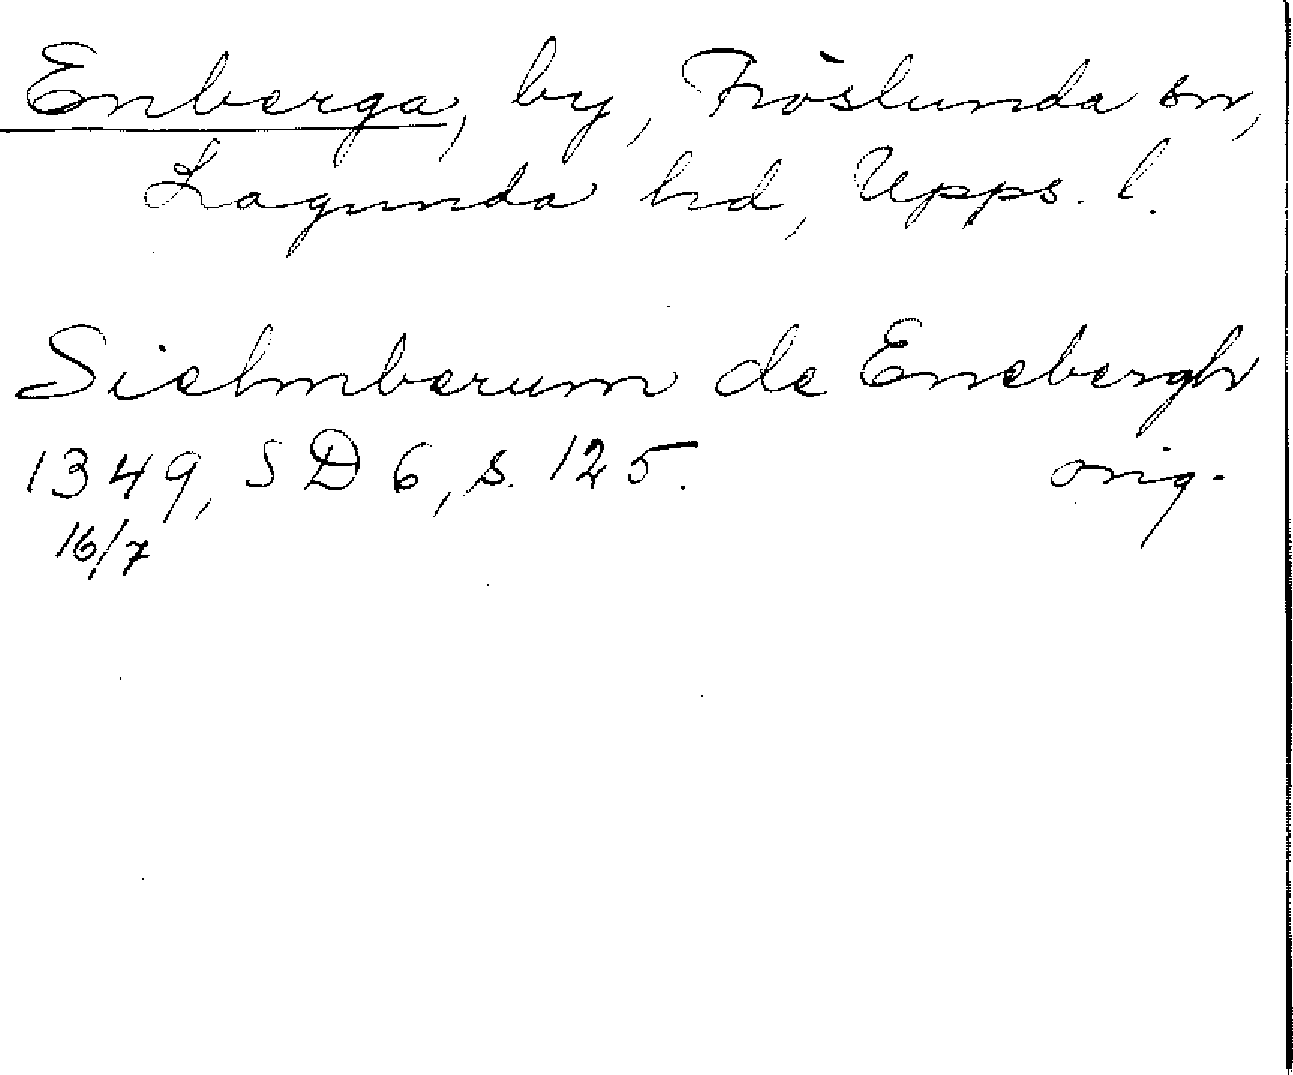 Enberga, by, Fröslunda sn,
Lagunda hd, Upps. l.
Sielmberum de Enebergh
1349, SD 6, s. 125. orig.
16/7